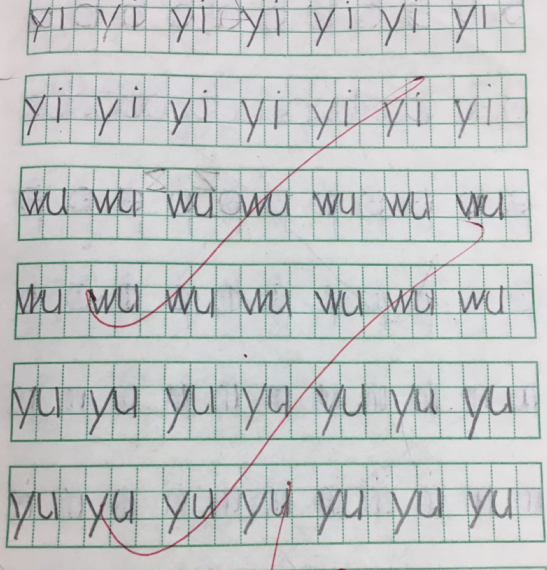 yi yi yi yi yi yi yi
yi yi yi yi yi yi yi
wu wu wu wu wu wu wu
wu wu wu wu wu wu wu
yu yu yu yu yu yu yu
yu yu yu yu yu yu yu